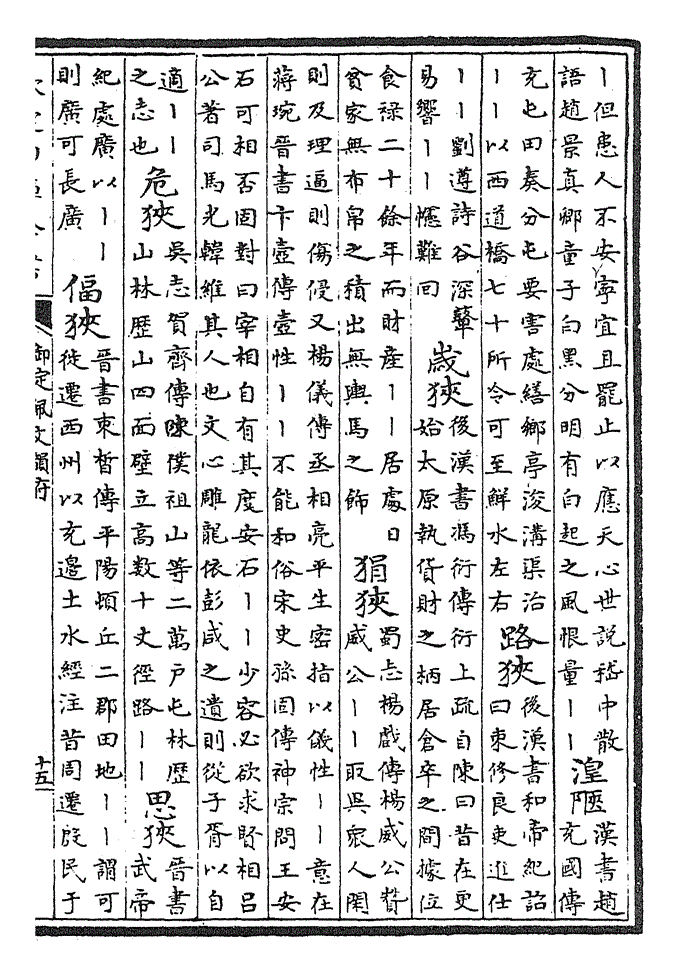 丨但患人不安寧宜且罷止以應天心世說嵇中散
語趙景真卿童子白黑分明有白起之風恨量丨丨
湟陿
漢書趙
充國傳
充屯田奏分屯要害處繕鄉亭浚溝渠治
丨丨以西道橋七十所令可至鮮水左右
路狹
後漢書和帝紀詔
曰束修良吏進仕
丨丨劉遵詩谷深鼙
易響丨丨幰難回
歲狹
後漢書馮衍傳衍上疏自陳曰昔在更
始太原執貨財之柄居倉卒之間據位
食祿二十餘年而財產丨丨居處日
貧家無布帛之積出無輿馬之飾
狷狹
蜀志楊戲傳楊威公贊
威公丨丨取異衆人閑
則及理逼則傷侵又楊儀傳丞相亮平生密指以儀性丨丨意在
蔣琬晉書卞壼傳壼性丨丨不能和俗宋史孫固傳神宗問王安
石可相否固對曰宰相自有其度安石丨丨少容必欲求賢相呂
公著司馬光韓維其人也文心雕龍依彭咸之遺則從子胥以自
適丨丨
之志也
危狹
吳志賀齊傳陳僕祖山等二萬戶屯林歷
山林歷山四面壁立高數十丈徑路丨丨
思狹
晉書
武帝
紀處廣以丨丨
則廣可長廣
偪狹
晉書束晳傳平陽頓丘二郡田地丨丨謂可
徙遷西州以充邊土水經注昔周遷殷民于
御定佩文韻府
十五